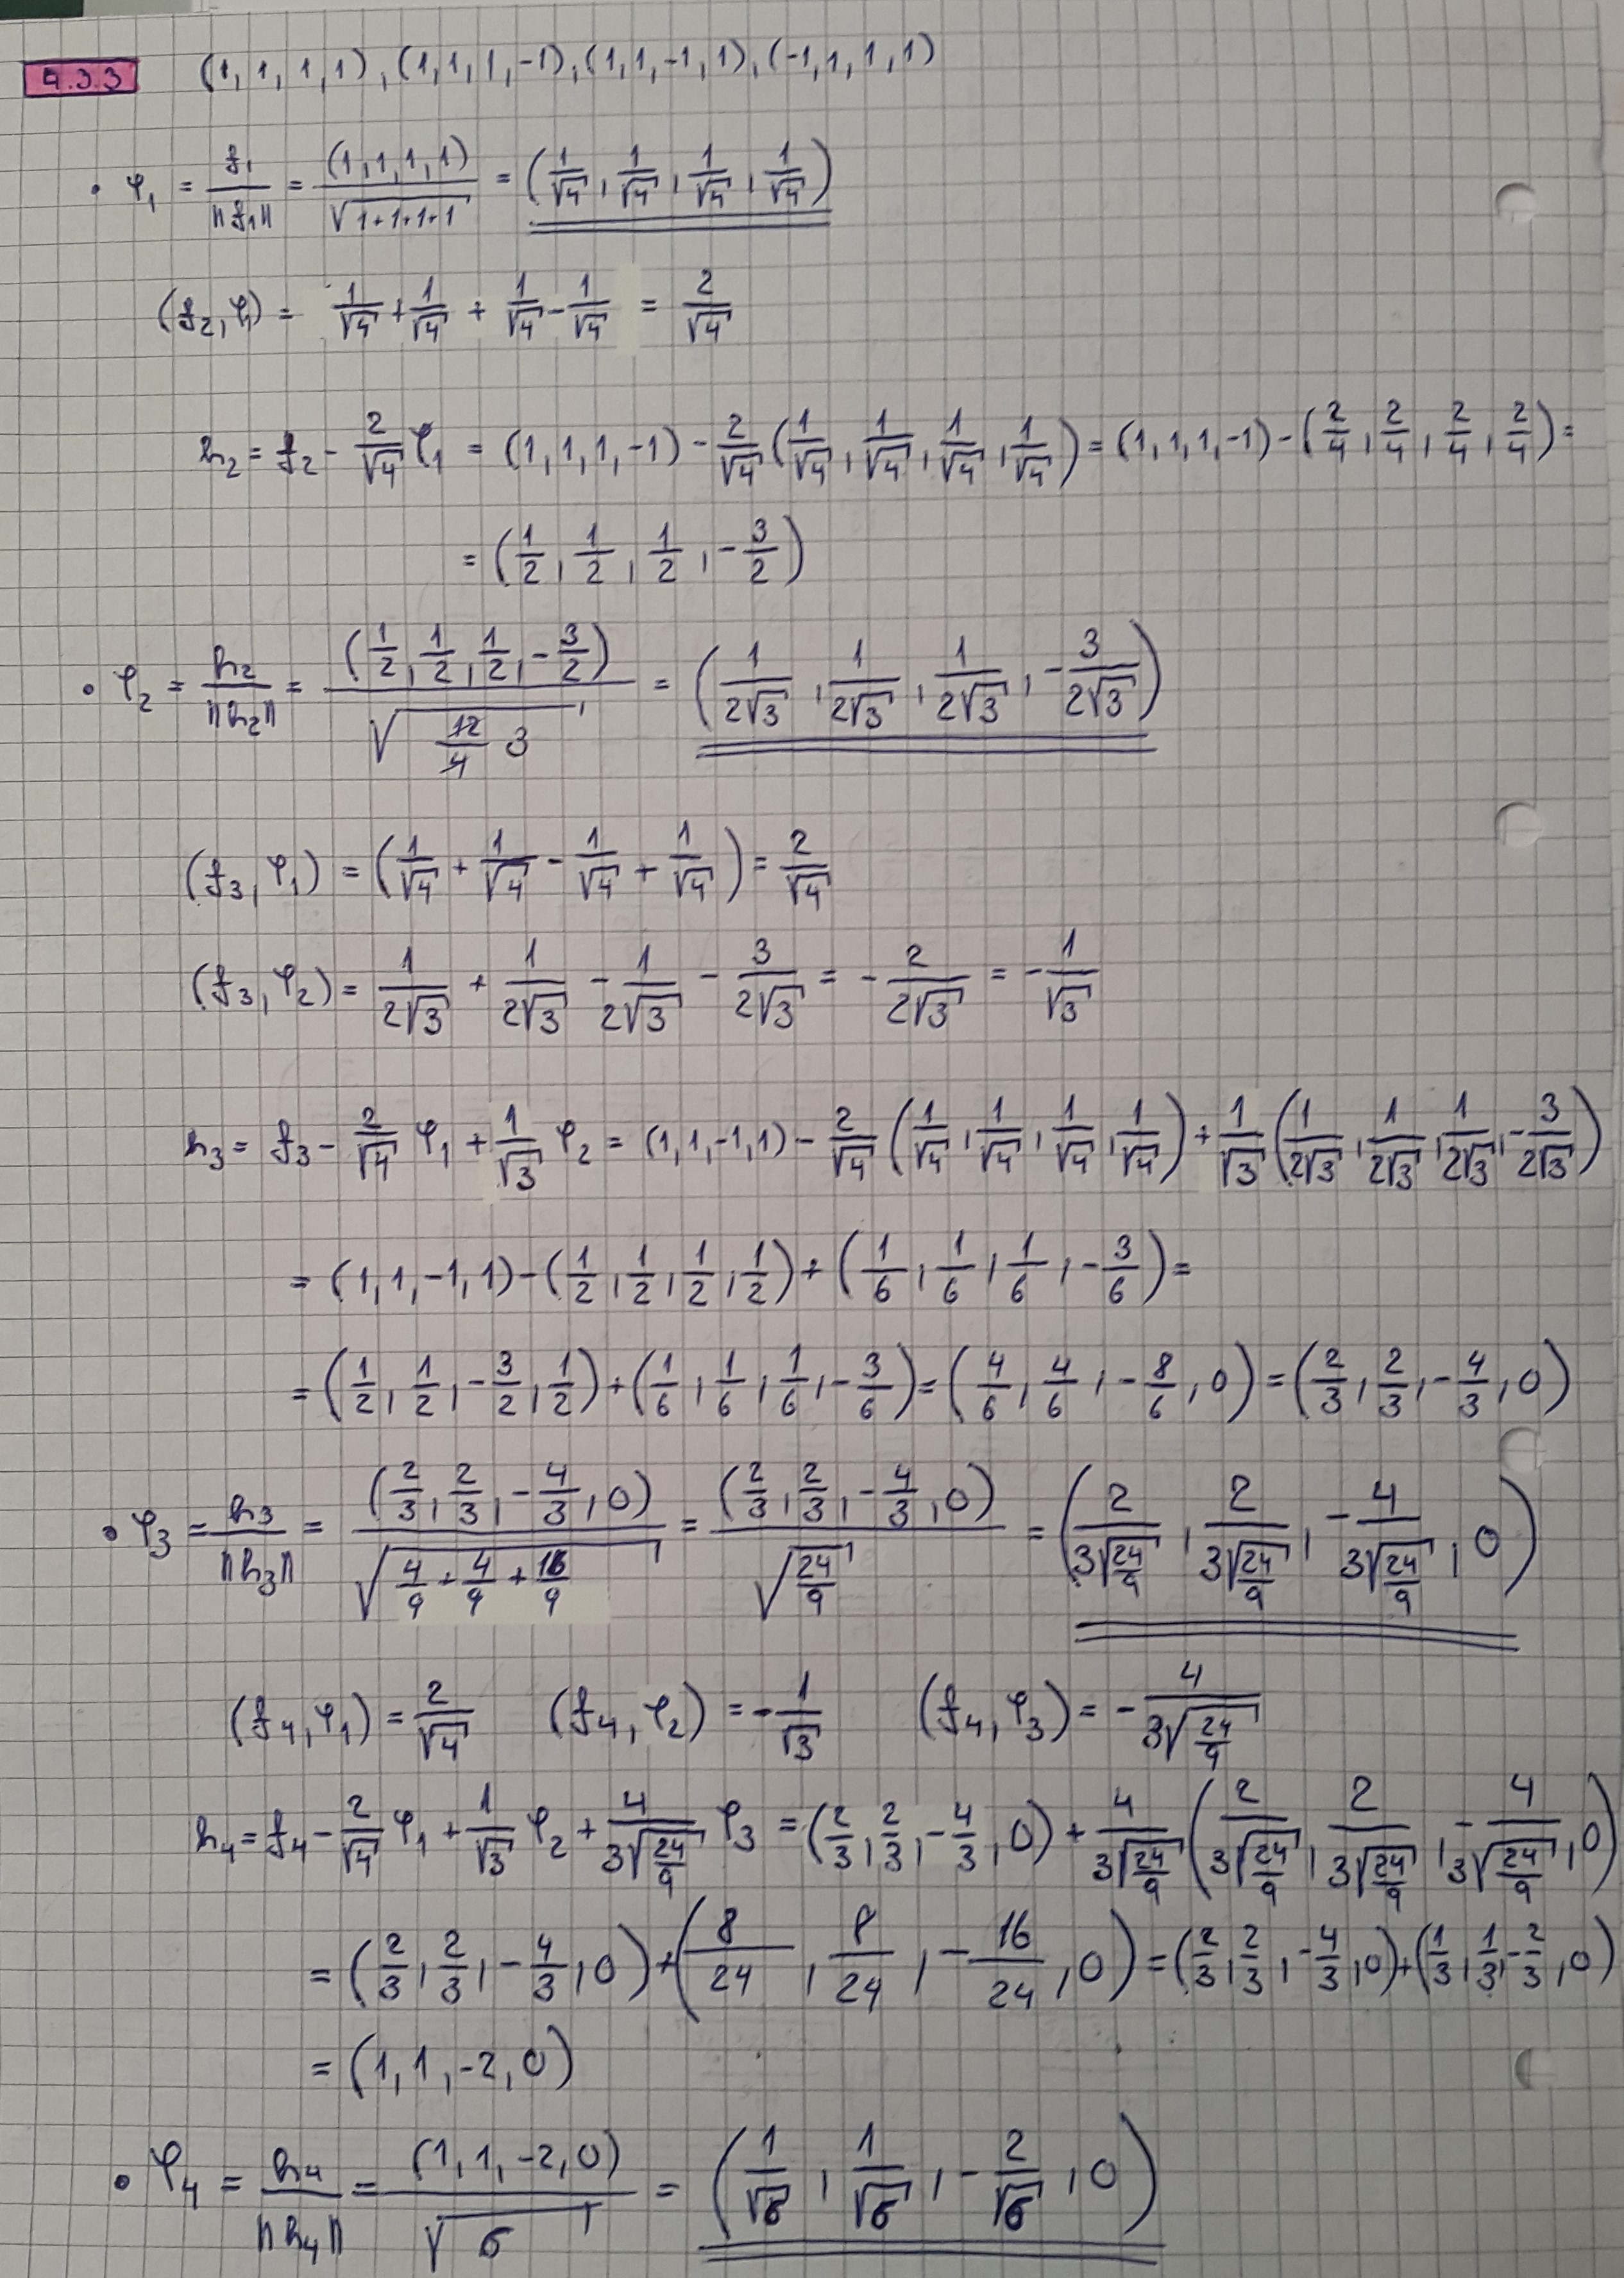 4.3.3 (1,1,1,1), (1,1,1,-1), (1,1,-1,1), (-1,1,1,1)
• φ₁ = f₁/‖f₁‖ = (1,1,1,1)/√(1+1+1+1) = (1/√4, 1/√4, 1/√4, 1/√4)
(f₂, φ₁) = 1/√4 + 1/√4 + 1/√4 - 1/√4 = 2/√4
h₂ = f₂ - 2/√4 φ₁ = (1,1,1,-1) - 2/√4 (1/√4, 1/√4, 1/√4, 1/√4) = (1,1,1,-1) - (2/4, 2/4, 2/4, 2/4) =
= (1/2, 1/2, 1/2, -3/2)
• φ₂ = h₂/‖h₂‖ = (1/2, 1/2, 1/2, -3/2)/√(12/4 3) = (1/2√3, 1/2√3, 1/2√3, -3/2√3)
(f₃, φ₁) = (1/√4 + 1/√4 - 1/√4 + 1/√4) = 2/√4
(f₃, φ₂) = 1/2√3 + 1/2√3 - 1/2√3 - 3/2√3 = -2/2√3 = -1/√3
h₃ = f₃ - 2/√4 φ₁ + 1/√3 φ₂ = (1,1,-1,1) - 2/√4 (1/√4, 1/√4, 1/√4, 1/√4) + 1/√3 (1/2√3, 1/2√3, 1/2√3, -3/2√3)
= (1,1,-1,1) - (1/2, 1/2, 1/2, 1/2) + (1/6, 1/6, 1/6, -3/6) =
= (1/2, 1/2, -3/2, 1/2) + (1/6, 1/6, 1/6, -3/6) = (4/6, 4/6, -8/6, 0) = (2/3, 2/3, -4/3, 0)
• φ₃ = h₃/‖h₃‖ = (2/3, 2/3, -4/3, 0)/√(4/9 + 4/9 + 16/9) = (2/3, 2/3, -4/3, 0)/√(24/9) = (2/3√(24/9), 2/3√(24/9), -4/3√(24/9), 0)
(f₄, φ₁) = 2/√4 (f₄, φ₂) = -1/√3 (f₄, φ₃) = -4/3√(24/9)
h₄ = f₄ - 2/√4 φ₁ + 1/√3 φ₂ + 4/3√(24/9) φ₃ = (2/3, 2/3, -4/3, 0) + 4/3√(24/9) (2/3√(24/9), 2/3√(24/9), -4/3√(24/9), 0)
= (2/3, 2/3, -4/3, 0) + (8/24, 8/24, -16/24, 0) = (2/3, 2/3, -4/3, 0) + (1/3, 1/3, -2/3, 0)
= (1,1,-2,0)
• φ₄ = h₄/‖h₄‖ = (1,1,-2,0)/√6 = (1/√6, 1/√6, -2/√6, 0)